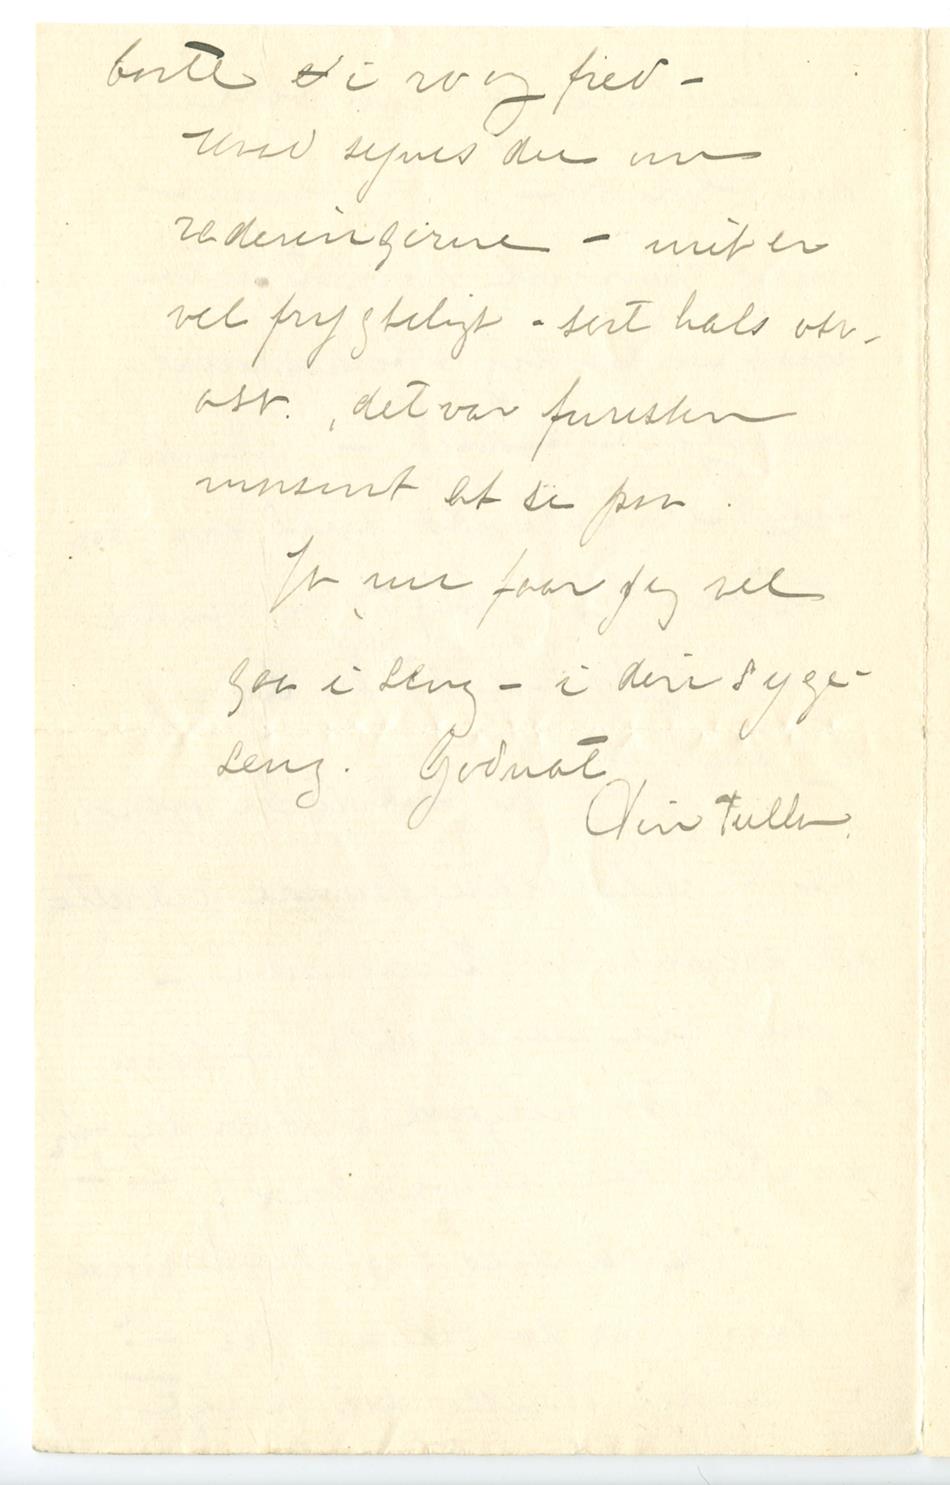 borte i ro og fred -
Hvad synes du om
raderingerne - mit er
vel frygteligt - sort hals osv.
osv. , det var forresten
morsomt at se paa .
Ja nu faar jeg vel
gaa i seng - i din syge-
seng. Godnat
Din Tulla.